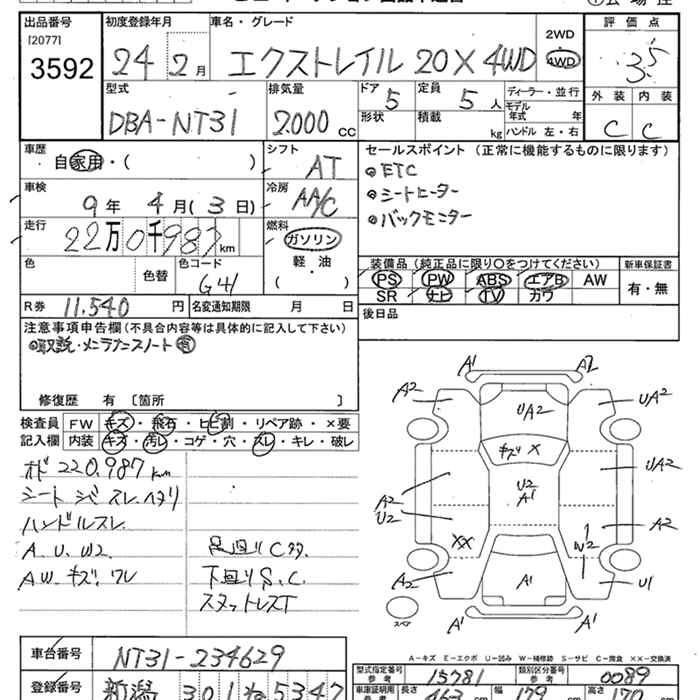 出品番号 初度登録年月 車名・グレード 評価点
[2077]
3592 24 2月 エクストレイル 20X 4WD 2WD 4WD 3.5
型式 排気量 ドア 定員 ディーラー・並行 外装 内装
DBA-NT31 2000cc 5 5人 モデル年式 年 C C
形状 積載 kg ハンドル 左・右
車歴 シフト セールスポイント(正常に機能するものに限ります)
自家用・( ) AT ◎ETC
車検 冷房 ◎シートヒーター
9年 4月(3日) AA/C ◎バックモニター
走行 燃料
22万0千987km ガソリン
色 色替 色コード 軽・油 装備品(純正品に限り○をつけてください) 新車保証書
G41 ( ) PS PW ABS エアB AW 有・無
R券 11,540円 名変通知期限 月 日 SR ナビ TV カワ
注意事項申告欄(不具合内容等は具体的に記入して下さい) 後日品
◎取説・メンテナンスノート有
修復歴 有〔箇所 〕
検査員 FW キズ・飛石・ヒビ割・リペア跡・×要
記入欄 内装 キズ・汚レ・コゲ・穴・スレ・キレ・破レ
オド 220,987km
シート シミ スレ ヘタリ
ハンドルスレ
A.U.W2 足廻りCタ.
AW.キズ.ワレ 下廻りS.C.
スタットレスT
A1 A2
A2 UA2 UA2
キズ X
UA2
U2
A1
A2
U2 A2
XX W2
A2 A1 U1
スペア A1 A1
A-キズ E-エクボ U-凹み W-補修跡 S-サビ C-腐食 XX-交換済
車台番号 NT31-234629
型式指定番号 参考 15781 類別区分番号 参考 0089
登録番号 新潟 301 ね 5347
車庫証明用 参考 長さ 463 幅 179 高さ 170